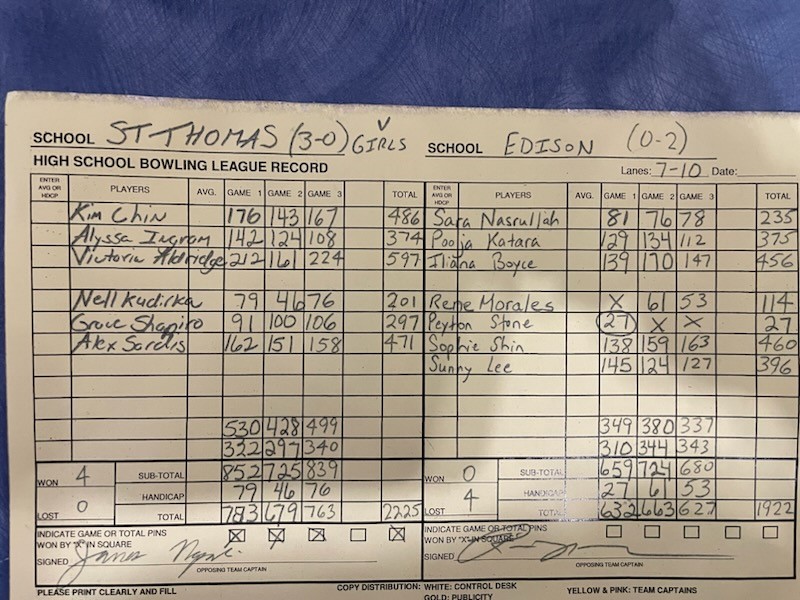 SCHOOL ST THOMAS (3-0) GIRLS V SCHOOL EDISON (0-2)
HIGH SCHOOL BOWLING LEAGUE RECORD Lanes: 7-10 Date:
ENTER AVG OR HDCP PLAYERS AVG. GAME 1 GAME 2 GAME 3 TOTAL ENTER AVG OR HDCP PLAYERS AVG. GAME 1 GAME 2 GAME 3 TOTAL
Kim Chin 176 143 167 486 Sara Nasrullah 81 76 78 235
Alyssa Ingram 142 124 108 374 Pooja Katara 129 134 112 375
Victoria Aldridge 212 161 224 597 Iliana Boyce 139 170 147 456
Nell Kudirka 79 46 76 201 Rene Morales X 61 53 114
Grace Shapiro 91 100 106 297 Peyton Stone 27 X X 27
Alex Sardis 162 151 158 471 Sophie Shin 138 159 163 460
Sunny Lee 145 124 127 396
530 428 499 349 380 337
322 297 340 310 344 343
WON 4 SUB-TOTAL 852 725 839 WON 0 SUB-TOTAL 659 724 680
HANDICAP 79 46 76 HANDICAP 27 61 53
LOST 0 TOTAL 783 679 763 2225 LOST 4 TOTAL 632 663 627 1922
INDICATE GAME OR TOTAL PINS WON BY "X" IN SQUARE X X X X INDICATE GAME OR TOTAL PINS WON BY "X" IN SQUARE
SIGNED James SIGNED
OPPOSING TEAM CAPTAIN OPPOSING TEAM CAPTAIN
PLEASE PRINT CLEARLY AND FILL COPY DISTRIBUTION: WHITE: CONTROL DESK YELLOW & PINK: TEAM CAPTAINS
GOLD: PUBLICITY